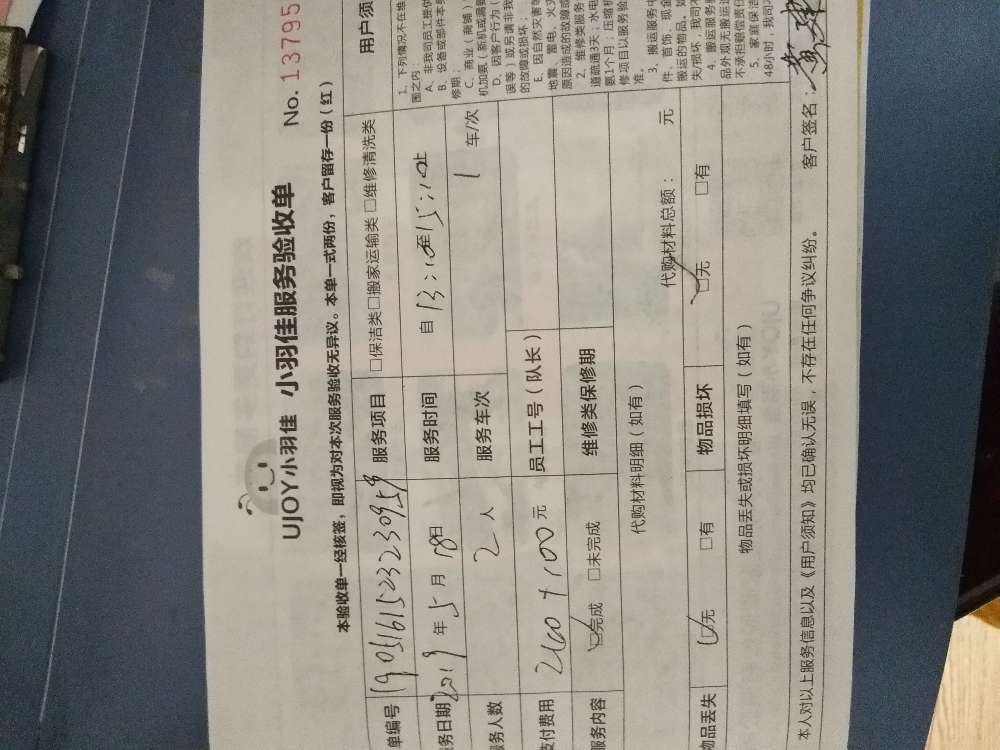 UJOY小羽佳 小羽佳服务验收单
No. 13795
本验收单一经核签，即视为对本次服务验收无异议。本单一式两份，客户留存一份（红）
单编号 190516152323095 服务项目 □保洁类 □搬家运输类 □维修清洗类
务日期 2019 年 5 月 18 日 服务时间 自 13:10 至 15:10 止
服务人数 2 人 服务车次 1 车/次
支付费用 2160+100 元 员工工号（队长）
服务内容 ☑完成 □未完成 维修类保修期
代购材料明细（如有） 代购材料总额： 元
物品丢失 ☑无 □有 物品损坏 ☑无 □有
物品丢失或损坏明细填写（如有）
用户须
1、下列情况不在维
围之内：
A、非我司员工提供
B、设备或部件本身
修期；
C、商业（商铺）
机加氨（新机或漏氨
D、因客户行为（
误等）或另请非我
的故障或损坏；
E、因自然灾害等
地震、蓄电、火灾
原因造成的故障或
2、维修类服务
道疏通3天；水电
氨1个月；压缩机
修项目以服务验
准。
3、搬运服务中
件、首饰、现金
搬运的物品。如
失/损坏，我司不
4、搬运服务验
品外观无搬运
不承担赔偿责任
5、家庭保洁
48小时，我司
本人对以上服务信息以及《用户须知》均已确认无误，不存在任何争议纠纷。 客户签名：